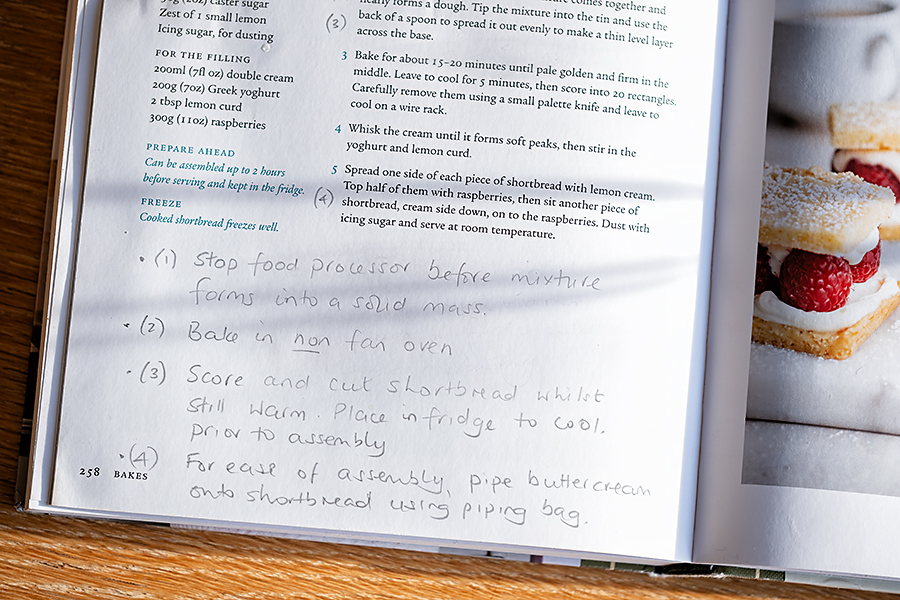 caster sugar
Zest of 1 small lemon
Icing sugar, for dusting
FOR THE FILLING
200ml (7fl oz) double cream
200g (7oz) Greek yoghurt
2 tbsp lemon curd
300g (11oz) raspberries
PREPARE AHEAD
Can be assembled up to 2 hours
before serving and kept in the fridge.
FREEZE
Cooked shortbread freezes well.
comes together and
forms a dough. Tip the mixture into the tin and use the
(3) back of a spoon to spread it out evenly to make a thin level layer
across the base.
3 Bake for about 15–20 minutes until pale golden and firm in the
middle. Leave to cool for 5 minutes, then score into 20 rectangles.
Carefully remove them using a small palette knife and leave to
cool on a wire rack.
4 Whisk the cream until it forms soft peaks, then stir in the
yoghurt and lemon curd.
5 Spread one side of each piece of shortbread with lemon cream.
(4) Top half of them with raspberries, then sit another piece of
shortbread, cream side down, on to the raspberries. Dust with
icing sugar and serve at room temperature.
• (1) Stop food processor before mixture
forms into a solid mass.
• (2) Bake in non fan oven
• (3) Score and cut shortbread whilst
still warm. Place in fridge to cool.
prior to assembly
• (4) For ease of assembly, pipe buttercream
onto shortbread using piping bag.
258 BAKES